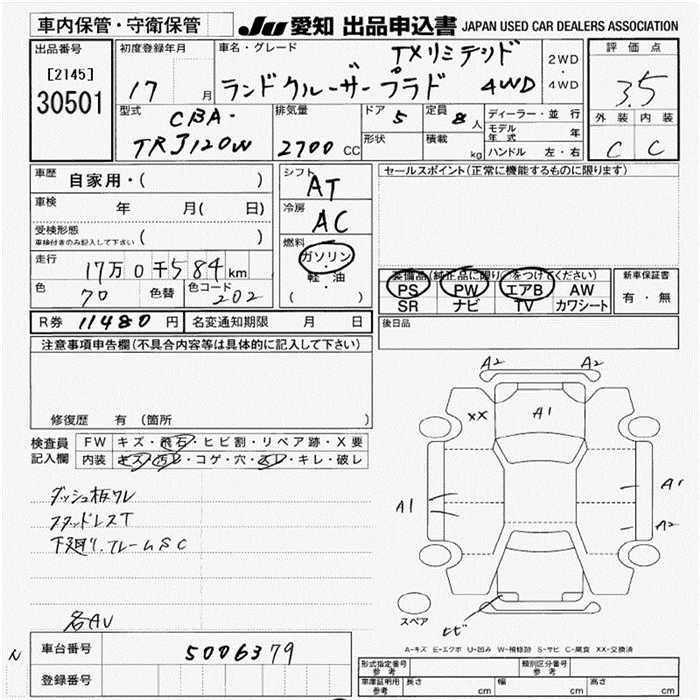 車内保管・守衛保管
JU 愛知 出品申込書 JAPAN USED CAR DEALERS ASSOCIATION
出品番号
[2145]
30501
初度登録年月
17 月
車名・グレード
TXリミテッド
ランドクルーザープラド 4WD
2WD
・
4WD
評価点
3.5
外装 内装
C C
型式
CBA-
TRJ120W
排気量
2700 CC
ドア 5
定員 8 人
形状
積載 kg
ディーラー・並行
モデル年式 年
ハンドル 左・右
車歴 自家用・( )
車検 年 月( 日)
受検形態
車検付きのみ記入して下さい ( )
走行
17万0千584km
色 70 色替 色コード 202
シフト
AT
冷房
AC
燃料
ガソリン
・
軽油
( )
セールスポイント(正常に機能するものに限ります)
装備品(純正品に限り○をつけてください)
PS PW エアB AW
SR ナビ TV カワシート
新車保証書
有・無
R券 11480 円 名変通知期限 月 日
後日品
注意事項申告欄(不具合内容等は具体的に記入して下さい)
修復歴 有 (箇所 )
検査員
記入欄
FW キズ・飛石・ヒビ割・リペア跡・X要
内装 キズ・汚レ・コゲ・穴・スレ・キレ・破レ
ダッシュ板ワレ
スタッドレスT
下廻り、フレームSC
名AV
A2 A2
XX A1
A1 A1
A2
スペア
ヒビ
A-キズ E-エクボ U-凹み W-補修跡 S-サビ C-腐食 XX-交換済
車台番号 5006379
登録番号
型式指定番号 参考
類別区分番号 参考
車庫証明用 参考 長さ cm 幅 cm 高さ cm